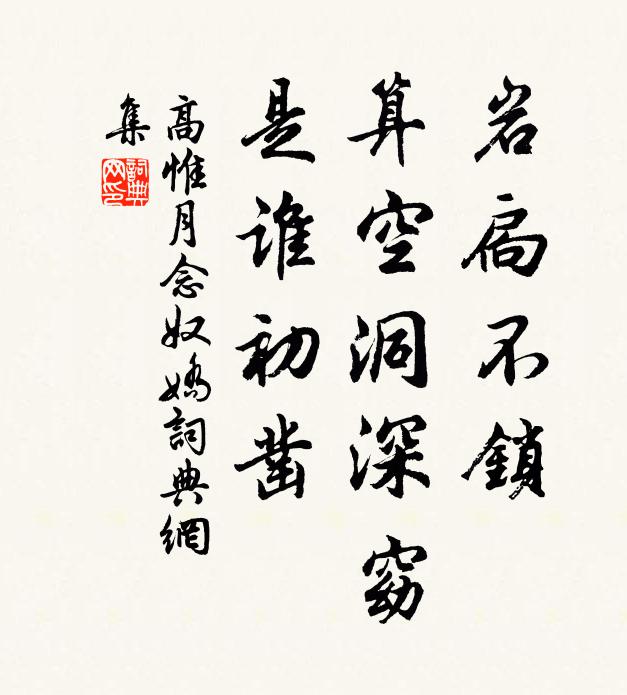 岩扃不鎖
算空洞深窈
是谁初凿
高惟月念奴嬌詞典網
集
詞典
网印